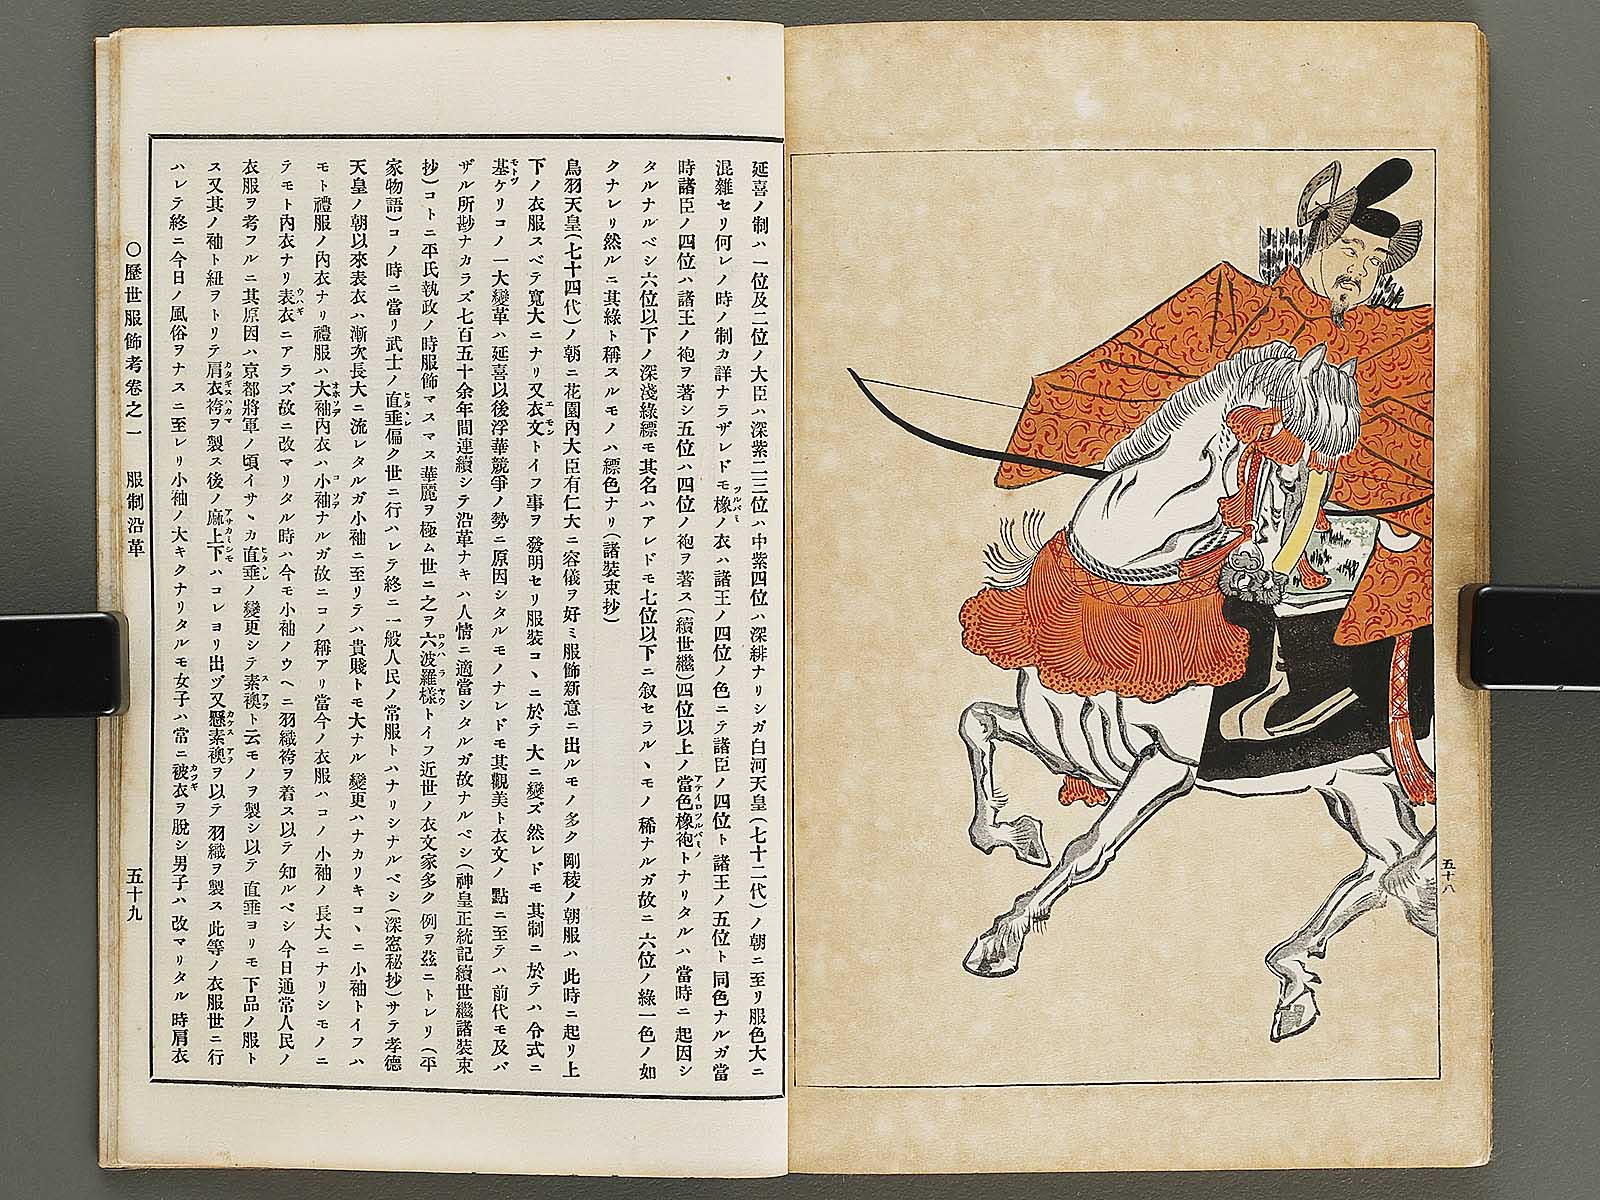 五十八
延喜ノ制ハ一位及二位ノ大臣ハ深紫二三位ハ中紫四位ハ深緋ナリシガ白河天皇(七十二代)ノ朝ニ至リ服色大ニ
混雜セリ何レノ時ノ制カ詳ナラザレドモ橡ツルバミノ衣ハ諸王ノ四位ノ色ニテ諸臣ノ四位ト諸王ノ五位ト同色ナルガ當
時諸臣ノ四位ハ諸王ノ袍ヲ著シ五位ハ四位ノ袍ヲ著ス(續世繼)四位以上ノ當色橡袍アテイロツルバミノトナリタルハ當時ニ起因シ
タルナルベシ六位以下ノ深淺綠縹モ其名ハアレドモ七位以下ニ敍セラルヽモノ稀ナルガ故ニ六位ノ綠一色ノ如
クナレリ然ルニ其綠ト稱スルモノハ縹色ナリ(諸裝束抄)
鳥羽天皇(七十四代)ノ朝ニ花園內大臣有仁大ニ容儀ヲ好ミ服飾新意ニ出ルモノ多ク剛稜ノ朝服ハ此時ニ起リ上
下ノ衣服スベテ寬大ニナリ又衣文エモントイフ事ヲ發明セリ服裝コヽニ於テ大ニ變ズ然レドモ其制ニ於テハ令式ニ
基モトヅケリコノ一大變革ハ延喜以後浮華競爭ノ勢ニ原因シタルモノナレドモ其觀美ト衣文ノ點ニ至テハ前代モ及バ
ザル所尠ナカラズ七百五十余年間連續シテ沿革ナキハ人情ニ適當シタルガ故ナルベシ(神皇正統記續世繼諸裝束
抄)コトニ平氏執政ノ時服飾マスマス華麗ヲ極ム世ニ之ヲ六波羅樣ロクハラヤウトイフ近世ノ衣文家多ク例ヲ茲ニトレリ(平
家物語)コノ時ニ當リ武士ノ直垂ヒタヽレ偏ク世ニ行ハレテ終ニ一般人民ノ常服トハナリシナルベシ(深窓秘抄)サテ孝德
天皇ノ朝以來表衣ハ漸次長大ニ流レタルガ小袖ニ至リテハ貴賤トモ大ナル變更ハナカリキコヽニ小袖トイフハ
モト禮服ノ內衣ナリ禮服ハ大袖オホソデ內衣ハ小袖コソデナルガ故ニコノ稱アリ當今ノ衣服ハコノ小袖ノ長大ニナリシモノニ
テモト內衣ナリ表衣ウハギニアラズ故ニ改マリタル時ハ今モ小袖ノウヘニ羽織袴ヲ着ス以テ知ルベシ今日通常人民ノ
衣服ヲ考フルニ其原因ハ京都將軍ノ頃イサヽカ直垂ヒタヽレノ變更シテ素襖スアヲト云モノヲ製シ以テ直垂ヨリモ下品ノ服ト
ス又其ノ袖ト紐ヲトリテ肩衣袴カタギヌハカマヲ製ス後ノ麻上下アサカミシモハコレヨリ出ヅ又懸素襖カケスアヲヲ以テ羽織ヲ製ス此等ノ衣服世ニ行
ハレテ終ニ今日ノ風俗ヲナスニ至レリ小袖ノ大キクナリタルモ女子ハ常ニ被衣カツギヲ脫シ男子ハ改マリタル時肩衣
○歷世服飾考卷之一 服制沿革 五十九